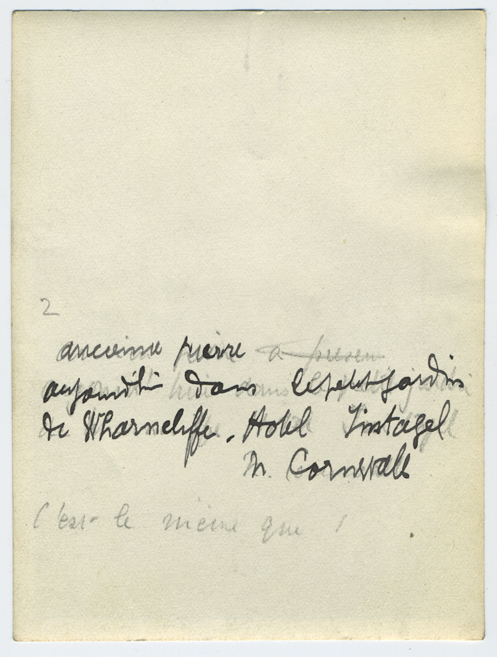 2
ancienne pierre a present
aujourd'hui dans le petit jardin
de Wharncliffe. Hotel Tintagel
N. Cornwall
C'est le meme que 1